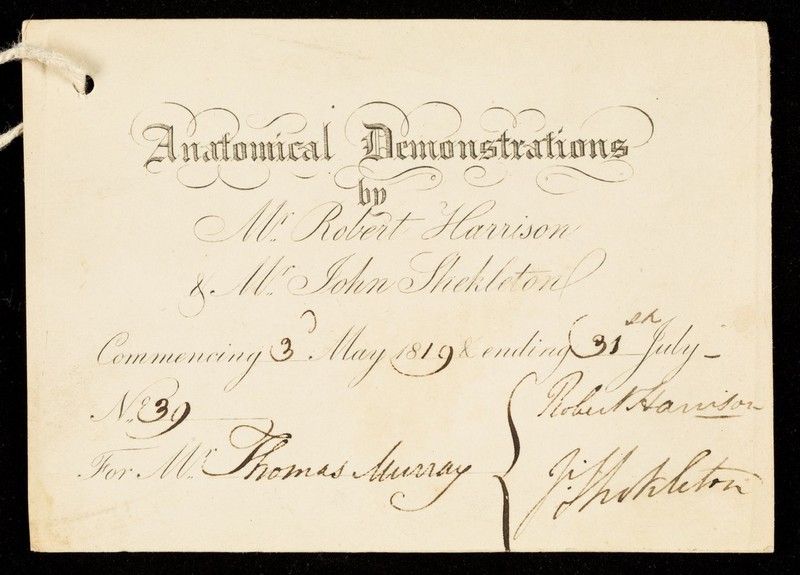 Anatomical Demonstrations
by
Mr. Robert Harrison
& Mr. John Shekleton
Commencing 3d May 1819 & ending 31st July
No. 39
Robert Harrison
For Mr. Thomas Murray
J. Shekleton